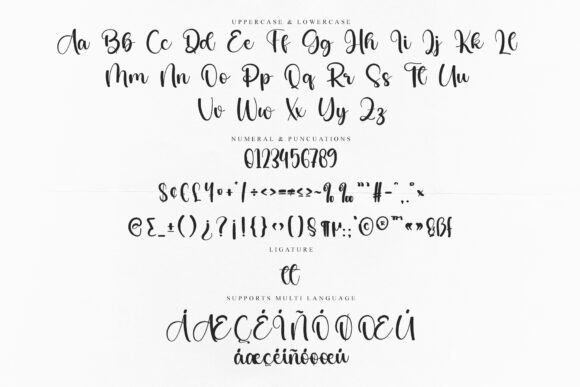 UPPERCASE & LOWERCASE
Aa Bb Cc Dd Ee Ff Gg Hh Ii Jj Kk Ll
Mm Nn Oo Pp Qq Rr Ss Tt Uu
Vv Ww Xx Yy Zz
NUMERAL & PUNCUATIONS
0123456789
$¢€£¥•+*/÷<>=≠≤≥~%‰"''#-^,.°×
@Σ_±()¿?¡!{}‹›()§¶µ:;'©®™«»§ßƒ
LIGATURE
tt
SUPPORTS MULTI LANGUAGE
ÁÆÇÉÍÑÓØOŒÚ
áæçéíñóøoœú